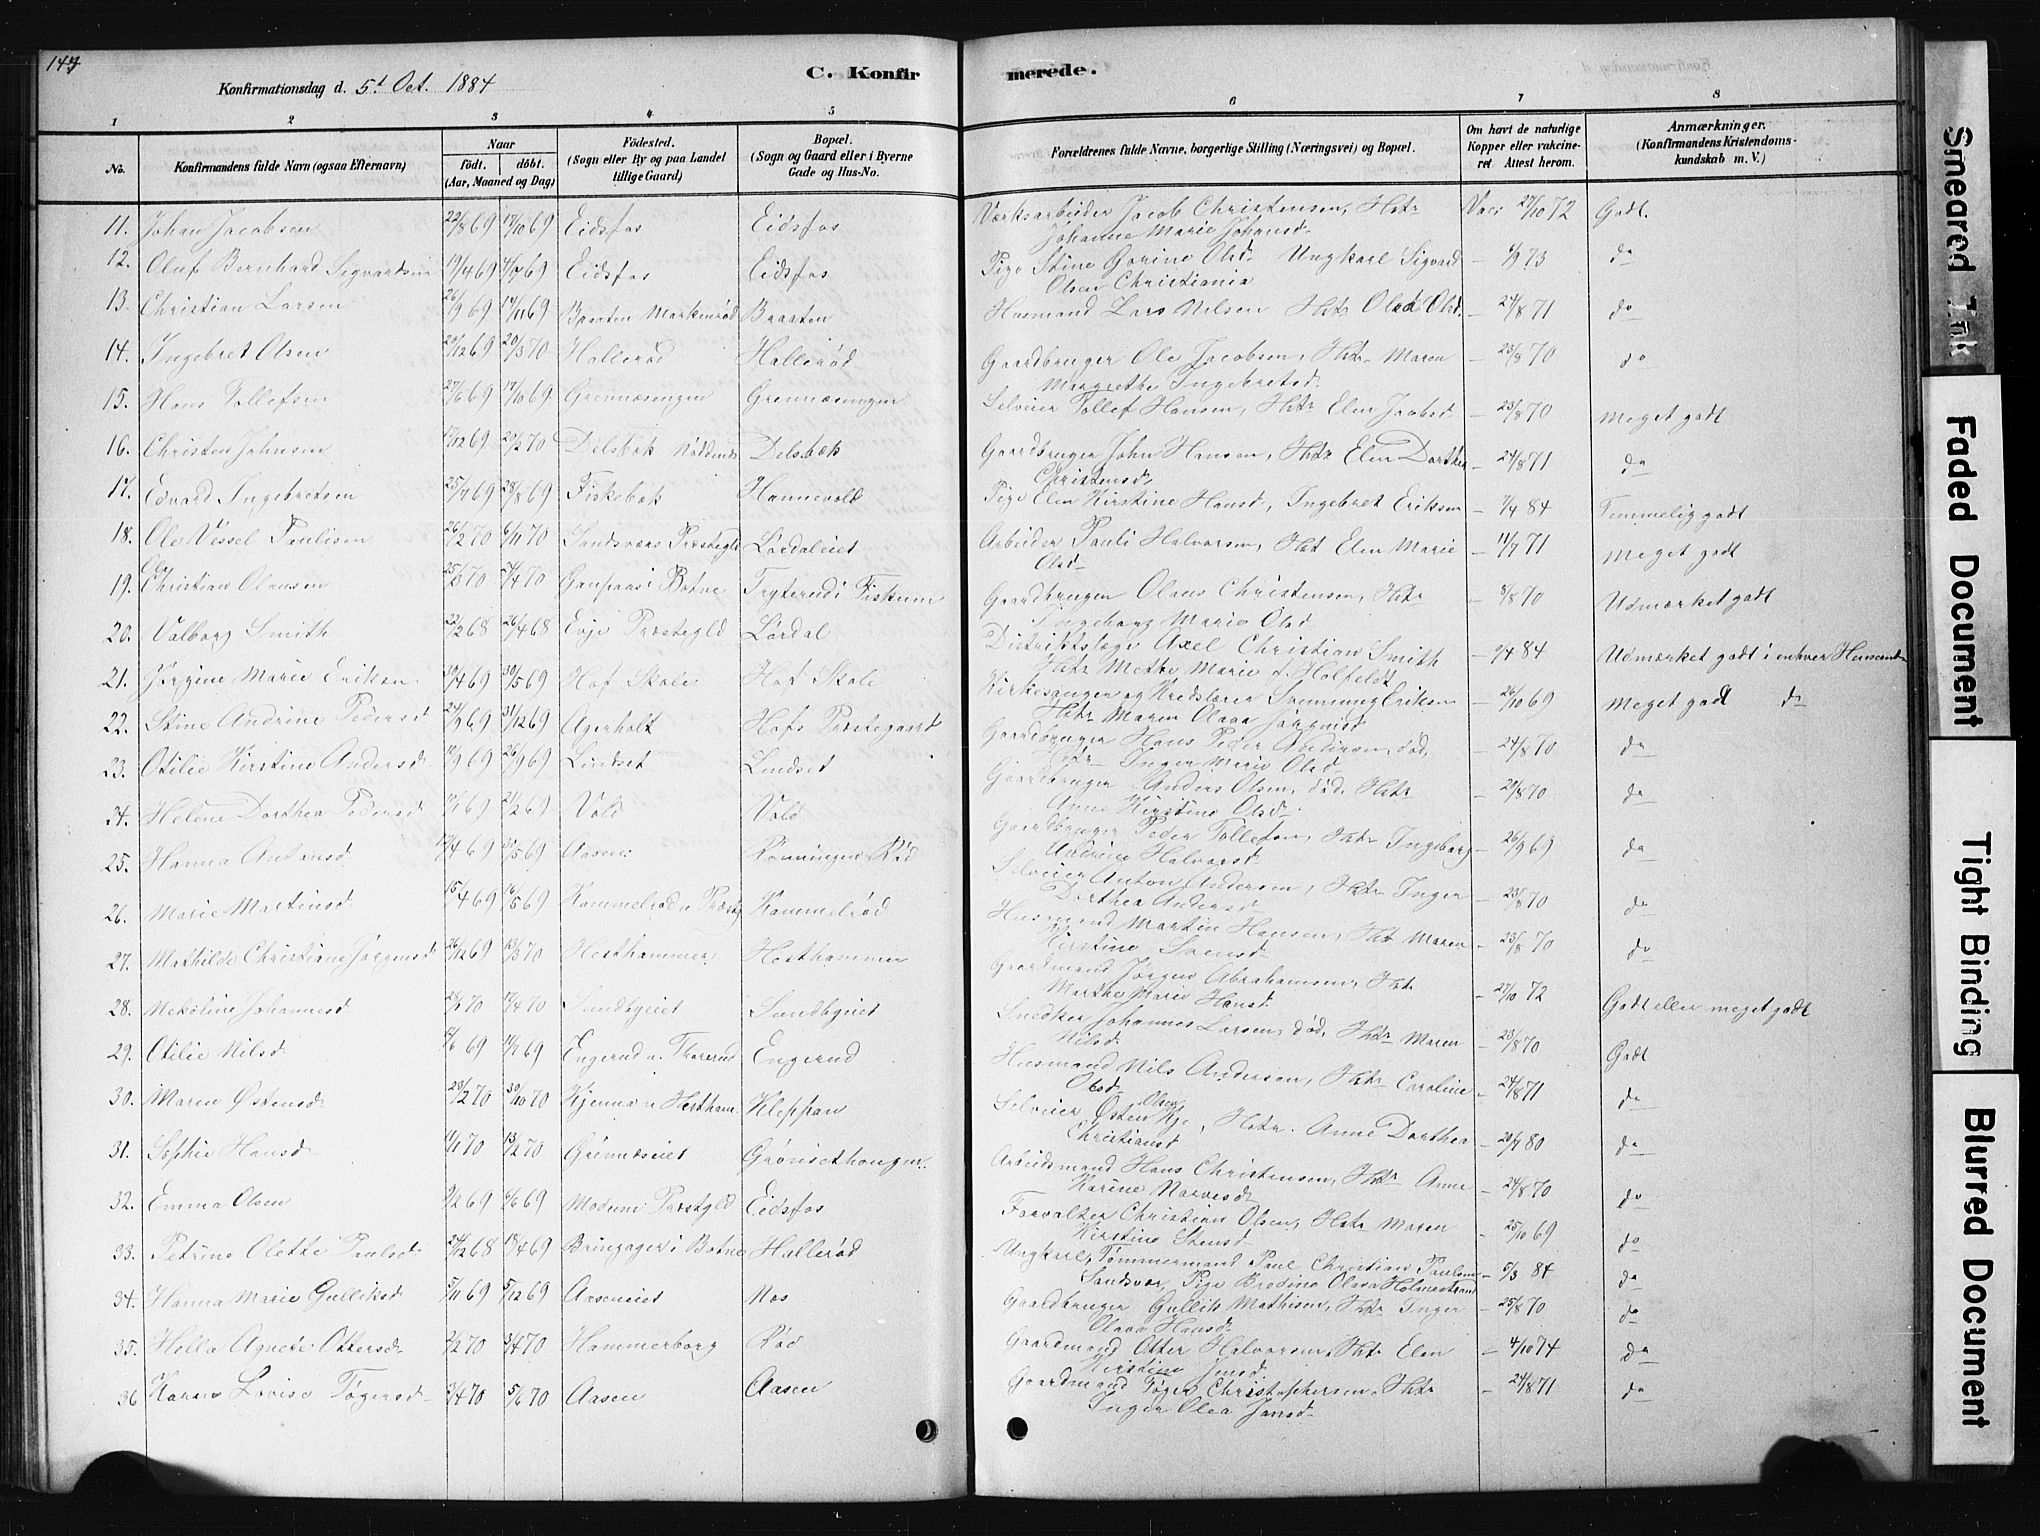 147
Konfirmationsdag d. 5t Oct. 1884
C. Konfirmerede.
1 2 3 4 5 6 7 8
No. Konfirmandens fulde Navn (ogsaa Efternavn) Naar Födt. döbt. (Aar, Maaned og Dag) Födested. (Sogn eller By og paa Landet tillige Gaard) Bopæl. (Sogn og Gaard eller i Byerne Gade og Hus-No. Forældrenes fulde Navne, borgerlige Stilling (Næringsvei) og Bopæl. Om havt de naturlige Kopper eller vakcineret. Attest herom. Anmærkninger. (Konfirmandens Kristendomskundskab m. V.)
11. Johan Jacobsen 22/8 69 17/10 69 Eidsfos Eidsfos Værksarbeider Jacob Christensen, Hstr Vacc 27/10 72 Godt.
Johanne Marie Johansd.
12. Oluf Bernhard Sigvardsen 19/4 69 4/7 69 Eidsfos Eidsfos Pige Stine Gorine Olsd. Ungkarl Sigvard — 73 do
Olsen Christiania
13. Christian Larsen 26/9 69 14/11 69 Braaten Markerød Braaten Husmand Lars Nilsen Hstr Olsd. — 24/8 71 do
14. Ingebret Olsen 29/12 69 20/3 70 Hallerød Hallerød Gaardbruger Ole Jacobsen, Hstr Maren — 23/8 70 do
Margrethe Ingebretsd.
15. Hans Tollefsen 27/6 69 17/10 69 Grennæsengen Grennæsengen Selveier Tollef Hansen, Hstr Elen Jacobsd — 23/8 70 Meget godt
16. Christen Johnsen 17/12 69 20/2 70 Delsbæk Delsbæk Gaardbruger John Hansen, Hstr Elen Dorthea — 24/8 71 do
Christensd
17. Edvard Ingebretsen 25/7 69 28/8 69 Fiskebæk Hannevold Pige Elen Kirstine Hansd, Ingebret Eriksen — 7/4 84 Temmelig godt
18. Ole Vessel Paulisen 26/2 70 6/11 70 Sandsværs Præstegld Lørdaleiet Arbeider Pauli Halvorsen, Hst Elen Marie — 11/7 71 Meget godt
Olsd
19. Christian Olausen 25/3 70 24/4 70 Gaupaas i Botne Tryterud i Fiskum Gaardbruger Olaus Christensen, Hstr — 8/8 70 Udmærket godt
Ingeborg Marie Olsd
20. Valborg Smith 22/2 68 26/4 68 Evje Præstegld Lørdal Distriktslæge Axel Christian Smith — 9/4 84 Udmærket godt i enhver Henseende
Hstr Mette Marie f. Holfeldt
21. Jørgine Marie Eriksen 30/4 69 30/5 69 Hof Skole Hof Skole Kirkesanger og Kredslærer Svenning Eriksen — 26/10 69 Meget godt do
Hstr Maren Olava Jørginsd
22. Stine Andrine Pedersd 24/9 69 31/12 69 Agerholt Hofs Præstegaard Gaardbruger Hans Peder Andersen, død, — 24/8 70 do
Hstr Inger Marie Olsd
23. Otilie Kirstine Andersd 10/9 69 26/9 69 Lindset Lindset Gaardbruger Anders Olsen, død, Hstr — 20/8 70 do
Anne Kirstine Olsd.
24. Helene Dorthea Pedersd 69 69 Vold Vold Gaardbruger Peder Tollefsen, Hstr Ingeborg — 26/9 69 do
Andrine Halvorsd
25. Hanna Antonsd 12/4 69 30/5 69 Aasen Rønningen Rød Selveier Anton Andersen, Hstr Inger — 23/8 70 do
Dorthea Andersd
26. Marie Martinsd 15/4 69 16/5 69 Kammelrød Kammelrød Husmand Martin Hansen, Hst Maren — 23/8 70 do
Kirstine Svensd
27. Mathilde Christiane Jørgensd 26/12 69 13/3 70 Hesthammer Hesthammer Gaardmand Jørgen Abrahamsen, Hst — 27/10 72 Godt eller meget godt
Marthe Marie Hansd.
28. Mekoline Johannesd 28/1 70 17/4 70 Sundbyeiet Sundbyeiet Snedker Johannes Larsen, død, Hstr Maren — 23/8 70 Godt
Nilsd
29. Otilie Nilsd 69 69 Engerud Engerud Husmand Nils Andersen, Hstr Caroline — 24/8 71 do
Olsd
30. Maren Østensd 23/2 70 30/10 70 Kjenna Kleppan Selveier Østen Olsen, Hstr. Anne Dorthea — 20/7 80 do
Christiansd
31. Sophie Hansd 11/1 70 13/2 70 Grennæseiet Grønsethaugen Arbeidsmand Hans Christensen, Hstr Anne — 24/8 70 do
Karine Narvesd
32. Emma Olsen 69 69 Modum Præstgld Eidsfos Forvalter Christian Olsen, Hstr Maren — 25/10 69 do
Kirstine Stensd
33. Petrine Olette Paulsd 24/12 68 18/4 69 Bringager i Botne Hallerød Ungkarl, Tømmermand Paul Christian Paulsen — 5/3 84 do
Sandsvær, Pige Bredine Olava Holmestrand
34. Hanna Marie Gulliksd 5/11 69 5/12 69 Aaseneiet Næs Gaardbruger Gullik Mathisen, Hstr Inger — 25/8 70 do
Olava Hansd
35. Hella Agnete Ottersd 2/2 70 3/4 70 Hammerborg Rød Gaardmand Otter Halvorsen, Hstr Elen — 4/10 74 do
Kirstine Jensd.
36 Karen Lovise Tøgersd 3/4 70 5/6 70 Aasen Aasen Gaardmand Tøger Christophersen, Hstr — 24/8 71 do
Inger Olea Jansd
Smeared Ink
Faded Document
Tight Binding
Blurred Document